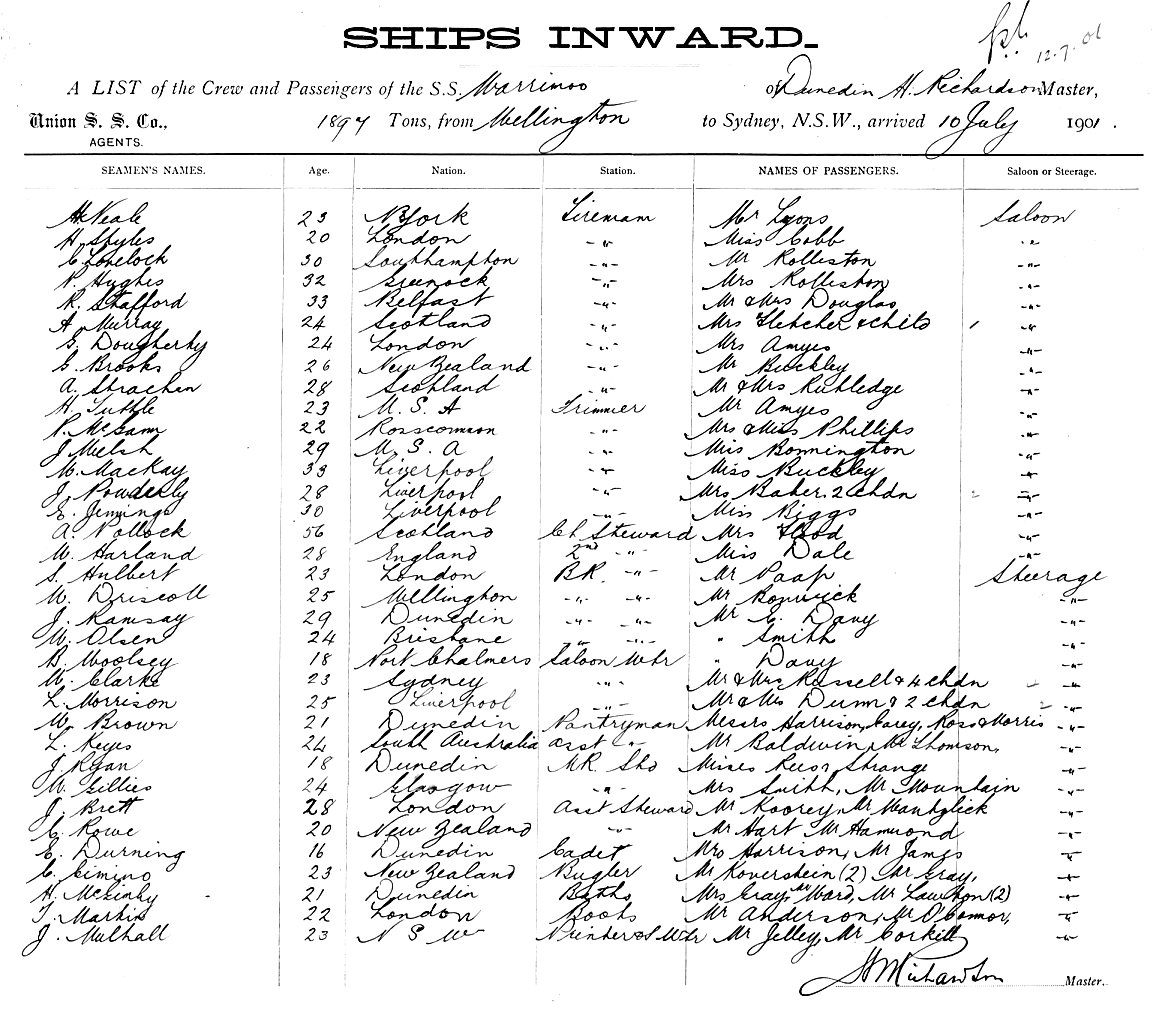 SHIPS INWARD.
12.7.01
A LIST of the Crew and Passengers of the S.S. Warrimoo of Dunedin H. Richardson Master,
Union S. S. Co., 1897 Tons, from Wellington to Sydney, N.S.W., arrived 10 July 1901.
AGENTS.
SEAMEN'S NAMES. Age. Nation. Station. NAMES OF PASSENGERS. Saloon or Steerage.
H Neale 23 N York Fireman Mr Lyons Saloon
H. Styles 20 London -"- Miss Cobb -"-
C. Lovelock 30 Southhampton -"- Mr Rolliston -"-
P. Hughes 32 Greenock -"- Mrs Rolliston -"-
R. Stafford 33 Belfast -"- Mr & Mrs Douglas -"-
A. Murray 24 Scotland -"- Mrs Fletcher & child -"-
G. Dougherty 24 London -"- Mrs Amyes -"-
G. Brooks 26 New Zealand -"- Mr Buckley -"-
A. Strachen 28 Scotland -"- Mr & Mrs Ruthledge -"-
H. Tuttle 23 U. S. A Trimmer Mr Amyes -"-
P. McGann 22 Roscommon -"- Mrs & Miss Phillips -"-
J. Welsh 29 U. S. A -"- Miss Bonnington -"-
M. MacKay 33 Liverpool -"- Miss Buckley -"-
J. Powderly 28 Liverpool -"- Mrs Baker. 2 chdn -"-
E. Jennings 30 Liverpool -"- Miss Biggs -"-
A. Pollock 56 Scotland Ch Steward Mrs Flood -"-
W. Harland 28 England 2nd -"- Miss Dale -"-
S. Hulbert 23 London BR. -"- Mr Paap Steerage
W. Driscoll 25 Wellington -"- -"- Mr Bonwick -"-
J. Ramsay 29 Dunedin -"- -"- Mr C. Davy -"-
W. Olsen 24 Brisbane -"- -"- " Smith -"-
B. Woolsey 18 Port Chalmers Saloon Wtr " Davy -"-
W. Clarke 23 Sydney -"- Mr & Mrs Russell & 4 chdn -"-
L. Morrison 25 Liverpool -"- Mr & Mrs Dunn & 2 chdn -"-
W. Brown 21 Dunedin Pantryman Messrs Harrison, Carey, Ross & Morris -"-
L. Keys 24 South Australia asst -"- Mr Baldwin, Mr Thomson, -"-
J Ryan 18 Dunedin MR. Std Misses Rees, Strange -"-
W. Gillies 24 Glasgow -"- Mrs Smith, Mr Mountain -"-
J. Brett 28 London Asst Steward Mr Koorey, Mr -"-
C. Rowe 20 New Zealand -"- Mr Hart Mr Hammond -"-
E. Durning 16 Dunedin Cadet Mrs Harrison, Mr James -"-
C. Cimino 23 New Zealand Bugler Mr Koverstein (2) Mr Gray, -"-
H. McGinty 21 Dunedin Baths Mrs Gray, Mr Ward, Mr Lawton (2) -"-
T. Martin 22 London Boots Mr Anderson, Mr O'Connor, -"-
J. Mulhall 23 N S W Printer & S Wtr Mr Jelley, Mr Corkill -"-
H Richardson Master.